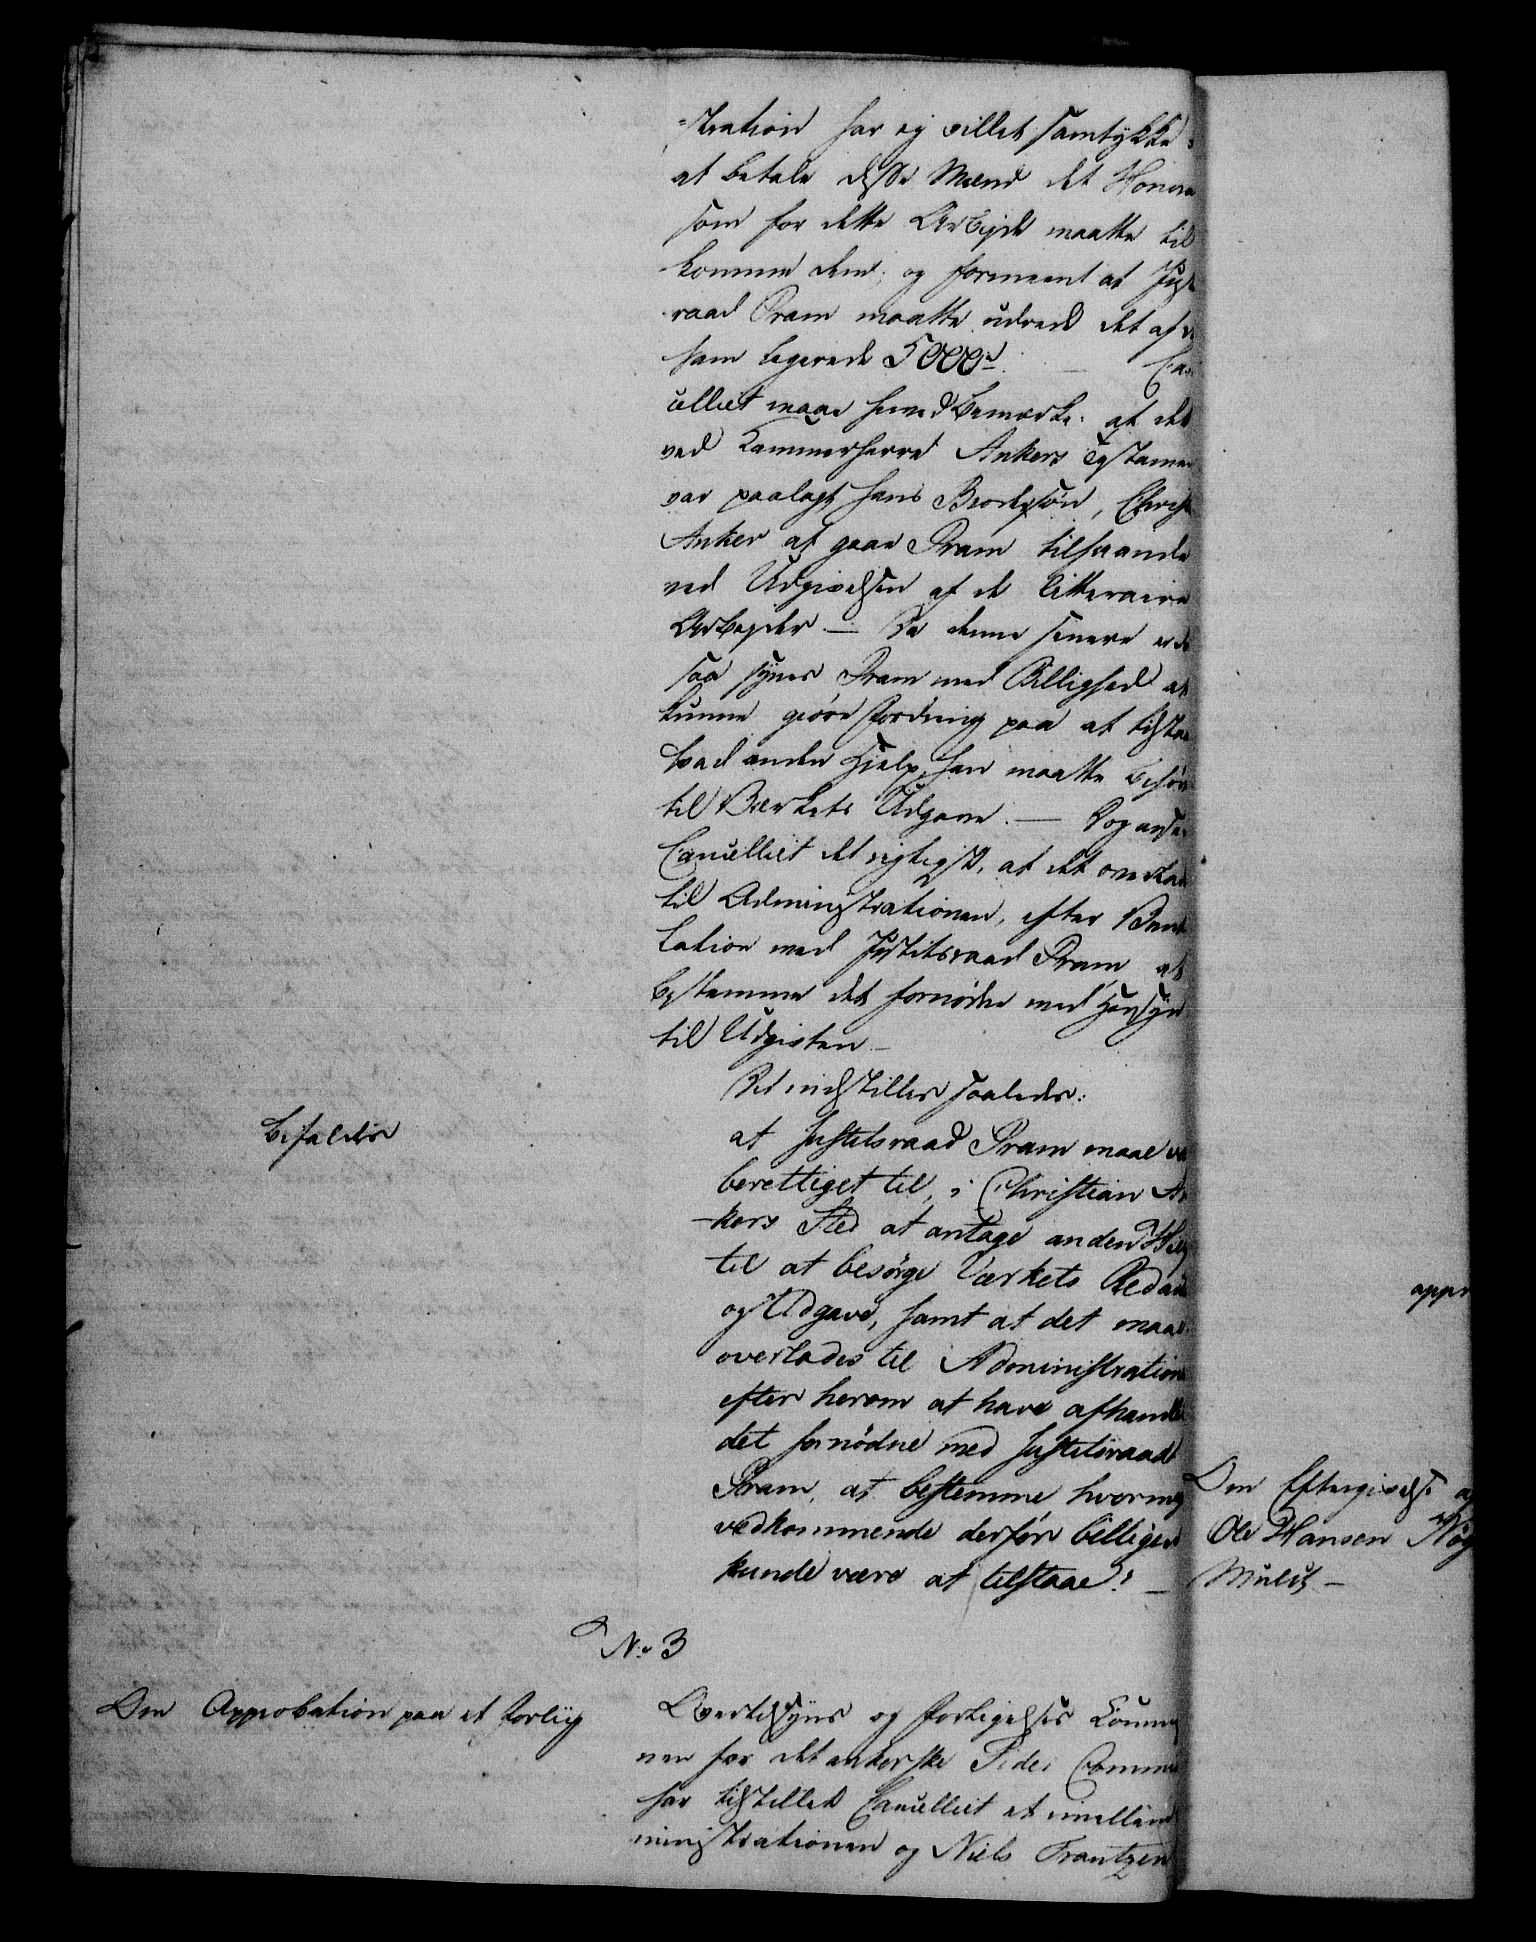 =tration har ej villet samtykke
at betale disse Mænd det Honora
som for dette Arbejde maatte til
komme dem, og formeent at Just
raad Pram maatte udrede det af d
ham legerede 5000 rd Can
celliet maae herved bemærke, at det
ved Kammerherre Ankers Testamen
var paalagt hans Brodersøn, Christ
Anker at gaae Pram tilhaande
ved Udgivelsen af de litteraire
Arbejder — Da denne senere er dø
saa synes Pram med Billighed at
kunne giøre Fordring paa at tilstaae
hvad anden Hielp han maatte behøve
til Værkets Udgave. — Dog anseer
Cancelliet det rigtigst, at det overlades
til Administrationen, efter Venti
lation med Justitsraad Pram at
bestemme det fornødne med Hensyn
til Udgivten —
Det indstilles saaledes:
befaledes
at Justitsraad Pram maae væ
berettiget til, i Christian An
-kers Sted at antage anden Hielp
til at besørge Værkets Redac
og Udgave, samt at det maae
overlades til Administration
efter herom at have afhandle
det fornødne med Justitsraad
Pram, at bestemme hvormeg
vedkommende derfor billigen
kunde være at tilstaae. —
No 3
Om Approbation paa et Forliig
Overtilsyns og Forligelses Comm
nen for det ankerske Fidei Comm
har tilstillet Cancelliet et imellem
ministrationen og Niels Frantzen
appr
Om Eftergivelse a
Ole Hansen
Mulct —